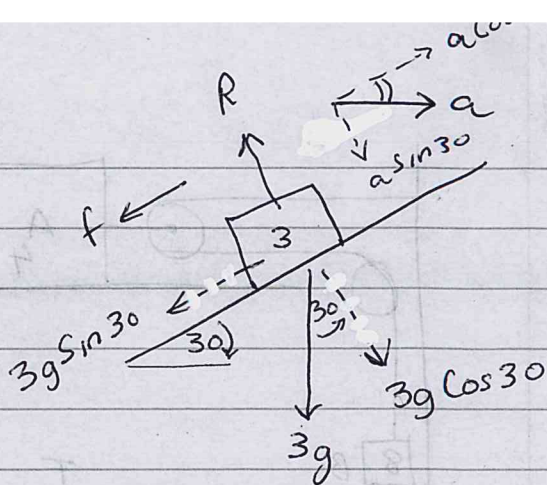 R
a
a sin30
f
3
3g Sin 30
30
30
3g Cos 30
3g